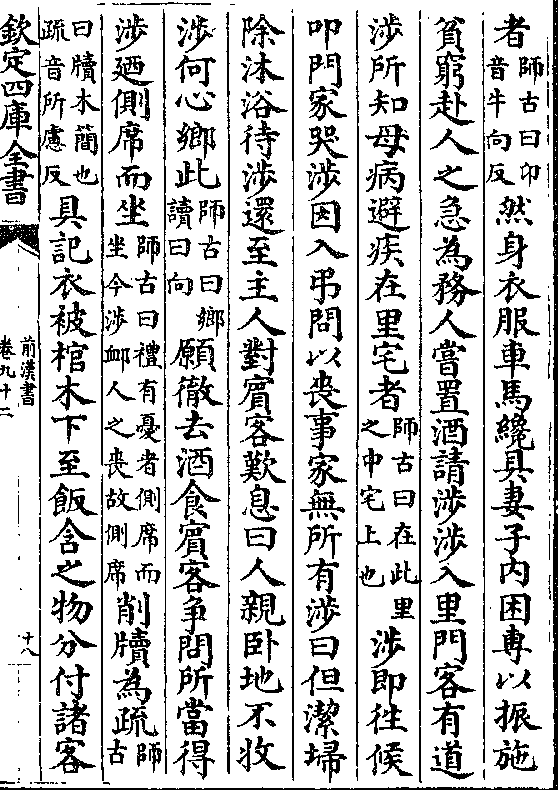 者師古曰卬音牛向反然身衣服車馬纔具妻子内困専以振施
貧窮赴人之急為務人嘗置酒請涉涉入里門客有道
涉所知母病避疾在里宅者師古曰在此里之中宅上也涉即往候
叩門家哭涉因入弔問以喪事家無所有涉曰但潔埽
除沐浴待涉還至主人對賔客歎息曰人親卧地不收
涉何心鄉此師古曰鄉讀曰向願徹去酒食賔客爭問所當得
涉廼側席而坐師古曰禮有憂者側席而坐今涉卹人之喪故側席削牘為疏師古
曰牘木簡也疏音所慮反具記衣被棺木下至飯含之物分付諸客
欽定四庫全書
前漢書
卷九十二
十八